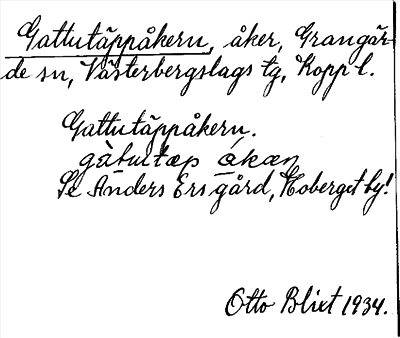 Gattutäppåkern, åker, Grangär-
de sn, Västerbergslags tg, Kopp l.
Gattutäppåkern.
gàtutæp åkæṇ
Se Anders Ers gård, Moberget by!
Otto Blixt 1934.